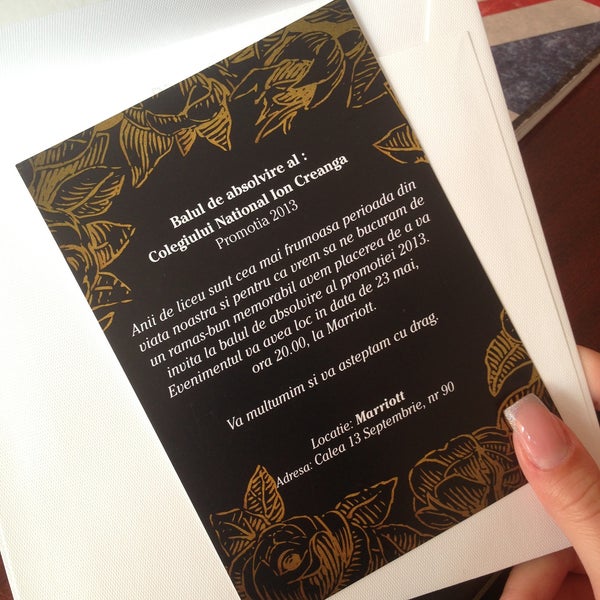 Balul de absolvire al :
Colegiului National Ion Creanga
Promotia 2013
Anii de liceu sunt cea mai frumoasa perioada din
viata noastra si pentru ca vrem sa ne bucuram de
un ramas-bun memorabil avem placerea de a va
invita la balul de absolvire al promotiei 2013.
Evenimentul va avea loc in data de 23 mai,
ora 20.00, la Marriott.
Va multumim si va asteptam cu drag.
Locatie: Marriott
Adresa: Calea 13 Septembrie, nr 90